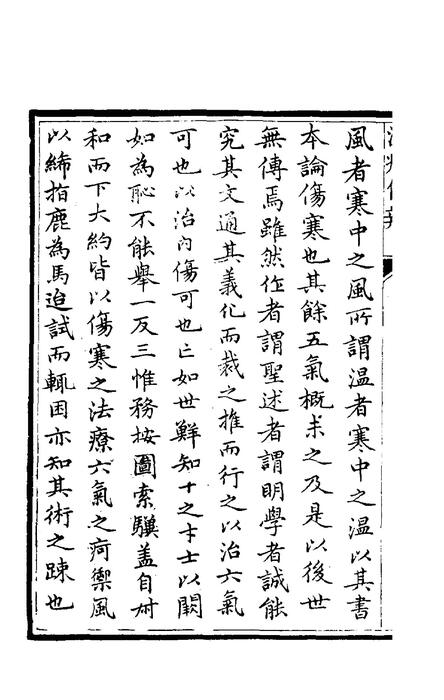 風者寒中之風所謂温者寒中之温以其書
本論傷寒也其餘五氣概未之及是以後世
無傳焉雖然作者謂聖述者謂明學者誠能
究其文通其義化而裁之推而行之以治六氣
可也以治內傷可也亡如世鮮知十之才士以闕
如為恥不能舉一反三惟務按圖索驥蓋自叔
和而下大約皆以傷寒之法療六氣之疴禦風
以絺指鹿為馬迨試而輒困亦知其術之踈也